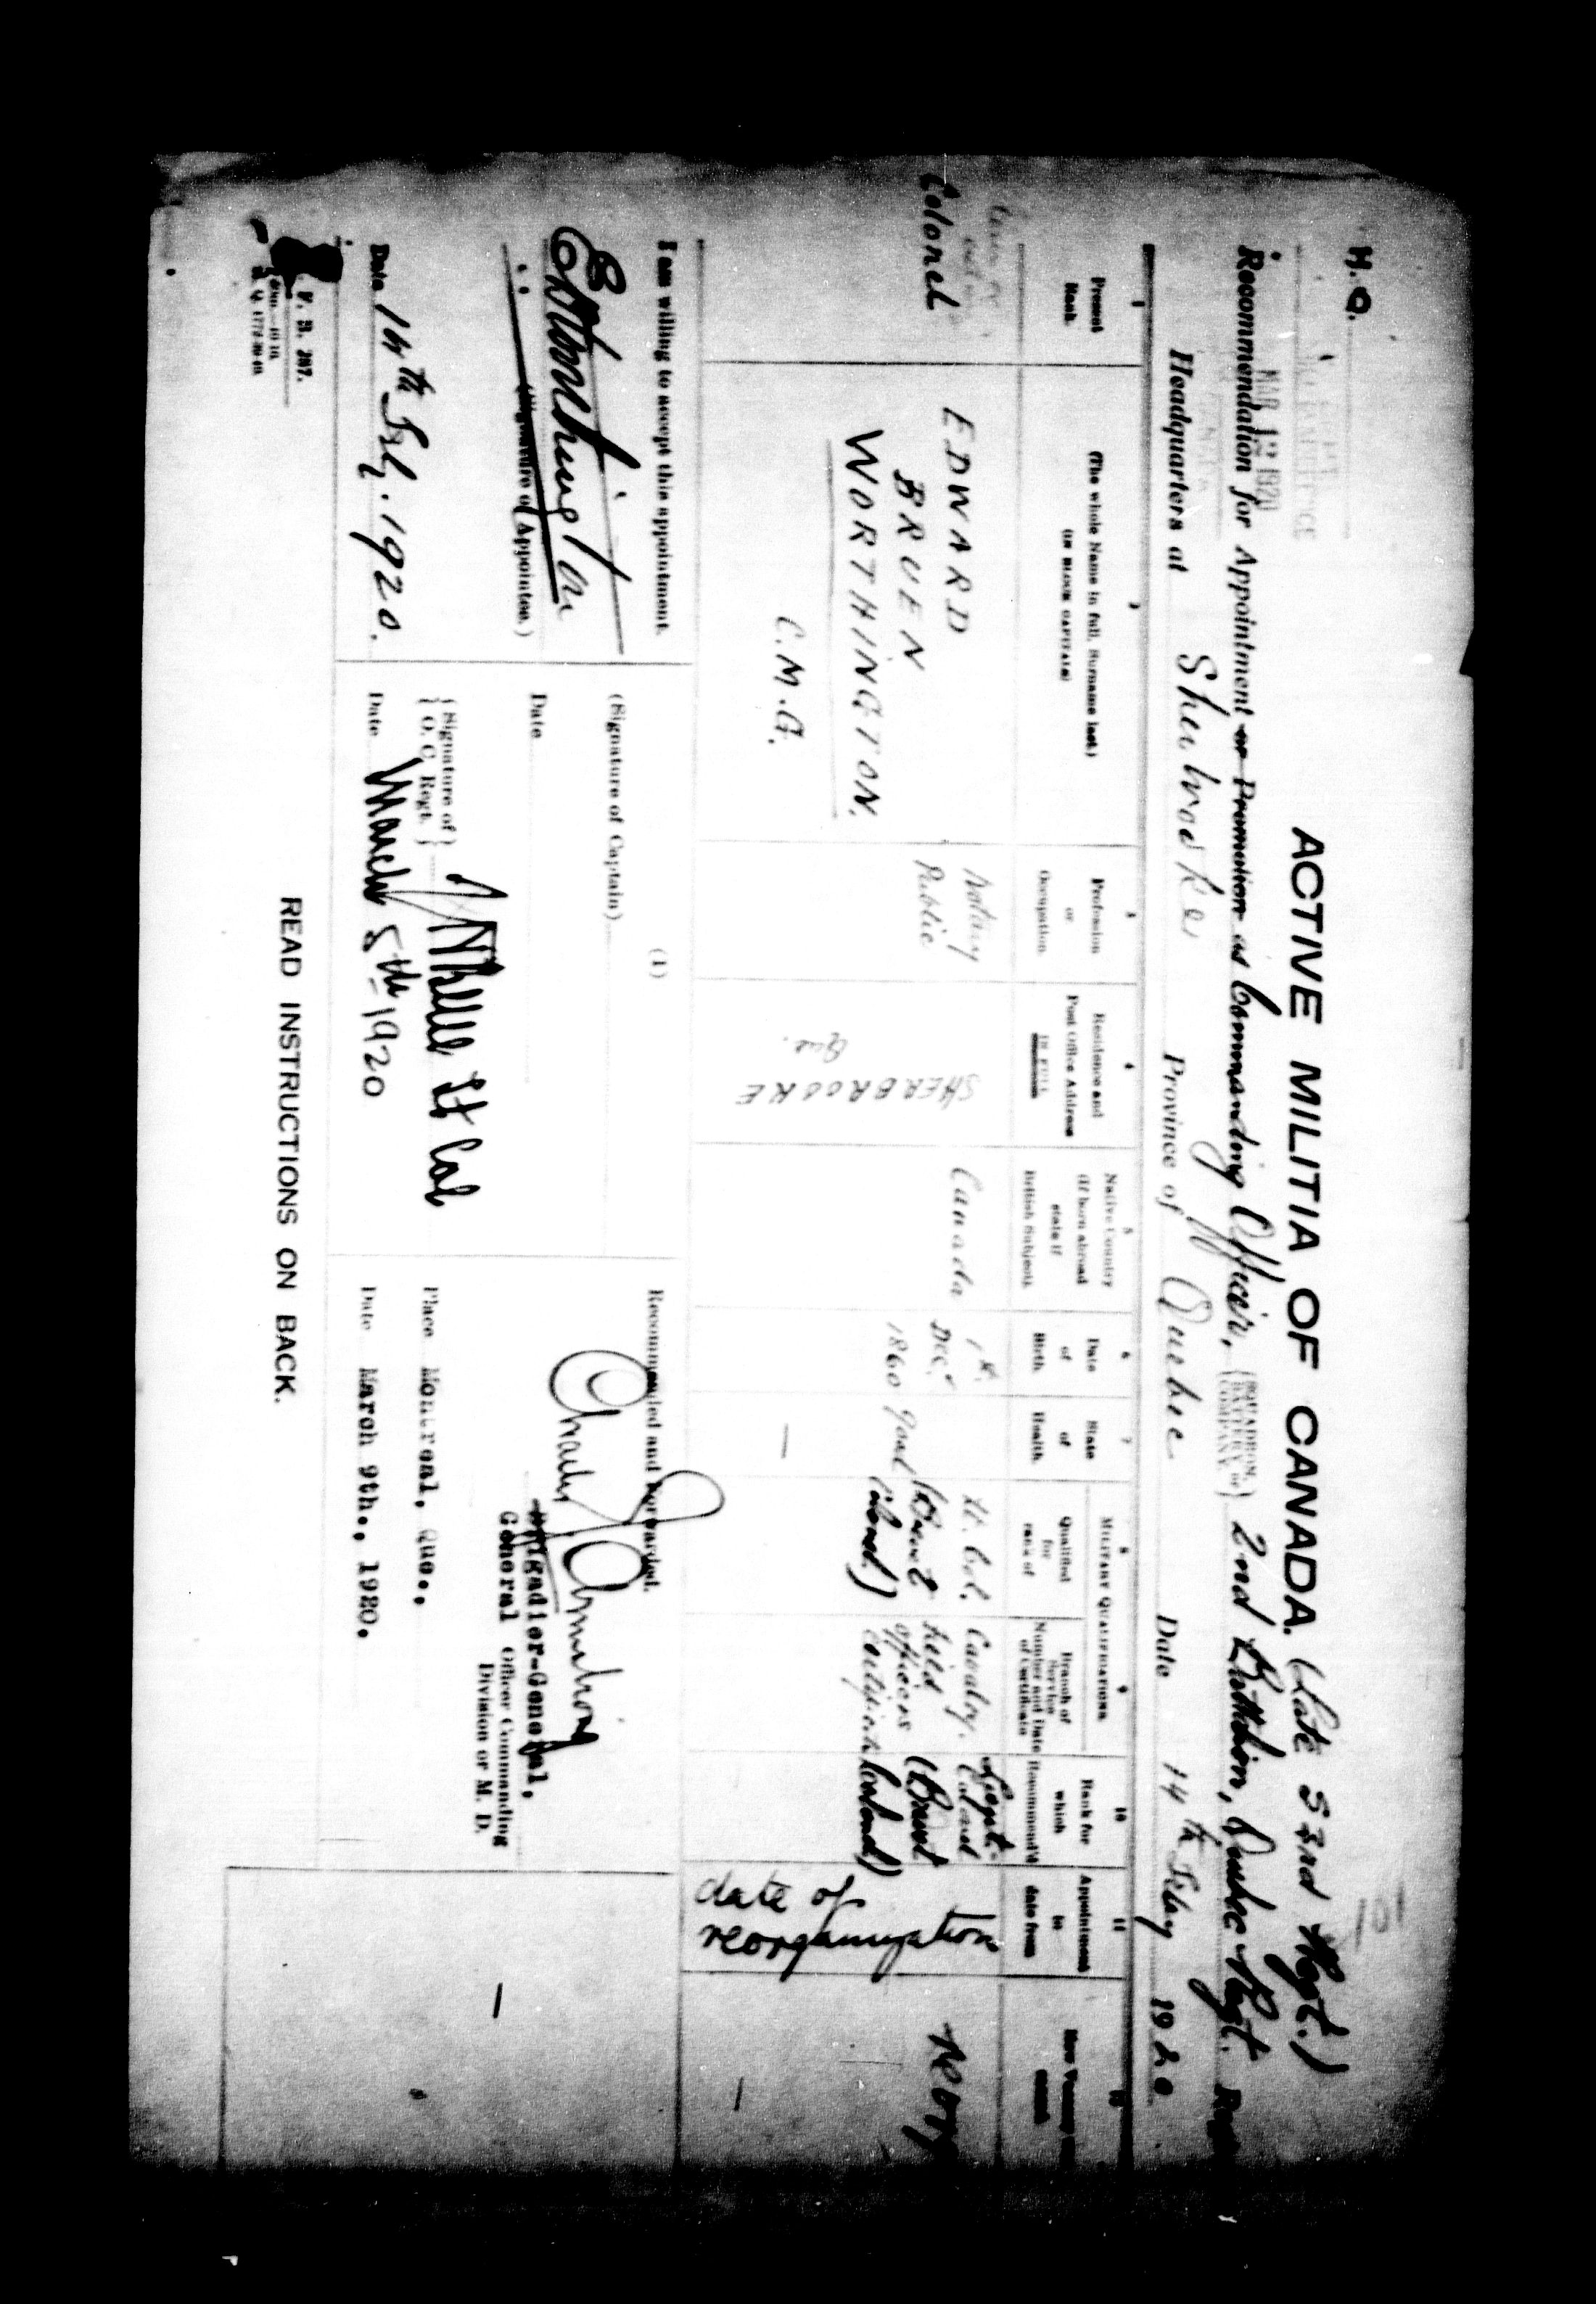 H.Q.
101
MAR 12 1920
ACTIVE MILITIA OF CANADA. (Late 53rd Regt.)
Recommendation for Appointment or Promotion as Commanding Officer, (SQUADRON, BATTERY or COMPANY) 2nd Battalion, Quebec Regt.
Headquarters at Sherbrooke Province of Quebec Date 14th Feby 1920
1
Present Rank.
2
(The whole Name in full. Surname last.)
(IN BLOCK CAPITALS)
3
Profession or Occupation
4
Residence and Post Office Address
IN FULL
5
Native Country
(If born abroad state if British Subject).
6
Date of Birth
7
State of Health
MILITARY QUALIFICATIONS
8
Qualified for rank of
9
Branch of Service
Number and Date of Certificate
10
Rank for which Recommend'd
11
Appointment to date from
12
How Vacancy
Colonel
EDWARD
BRUEN
WORTHINGTON.
C.M.G.
Notary
Public
SHERBROOKE
Que.
Canada
1st.
Dec.
1860
Good
Lt. Col.
(Brevet
Colonel)
Cavalry.
Field
officers
certificate
Lieut.
Colonel
(Brevet
Colonel)
date of
reorganization
Reorg
I am willing to accept this appointment.
EBWorthington
(Signature of Appointee.)
Date 14th Feby. 1920.
(1)
(Signature of Captain)
Date
{Signature of O. C. Regt.} Lt Col
Date March 5th 1920
Recommended and Forwarded.
Brigadier-General,
General Officer Commanding
Division or M. D.
Place Montreal, Que.,
Date March 9th., 1920.
READ INSTRUCTIONS ON BACK.
F. B. 287.